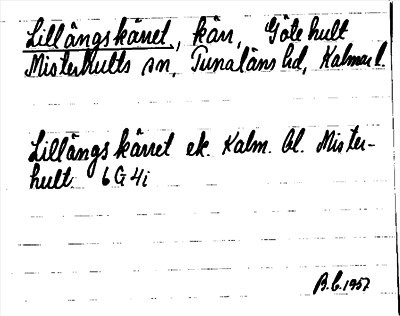 Lillängskärret, kärr, Götehult
Misterhults sn, Tunaläns hd, Kalmar l.
Lillängskärret ek. Kalm. bl. Mister-
hult 6G4i
B.L. 1957